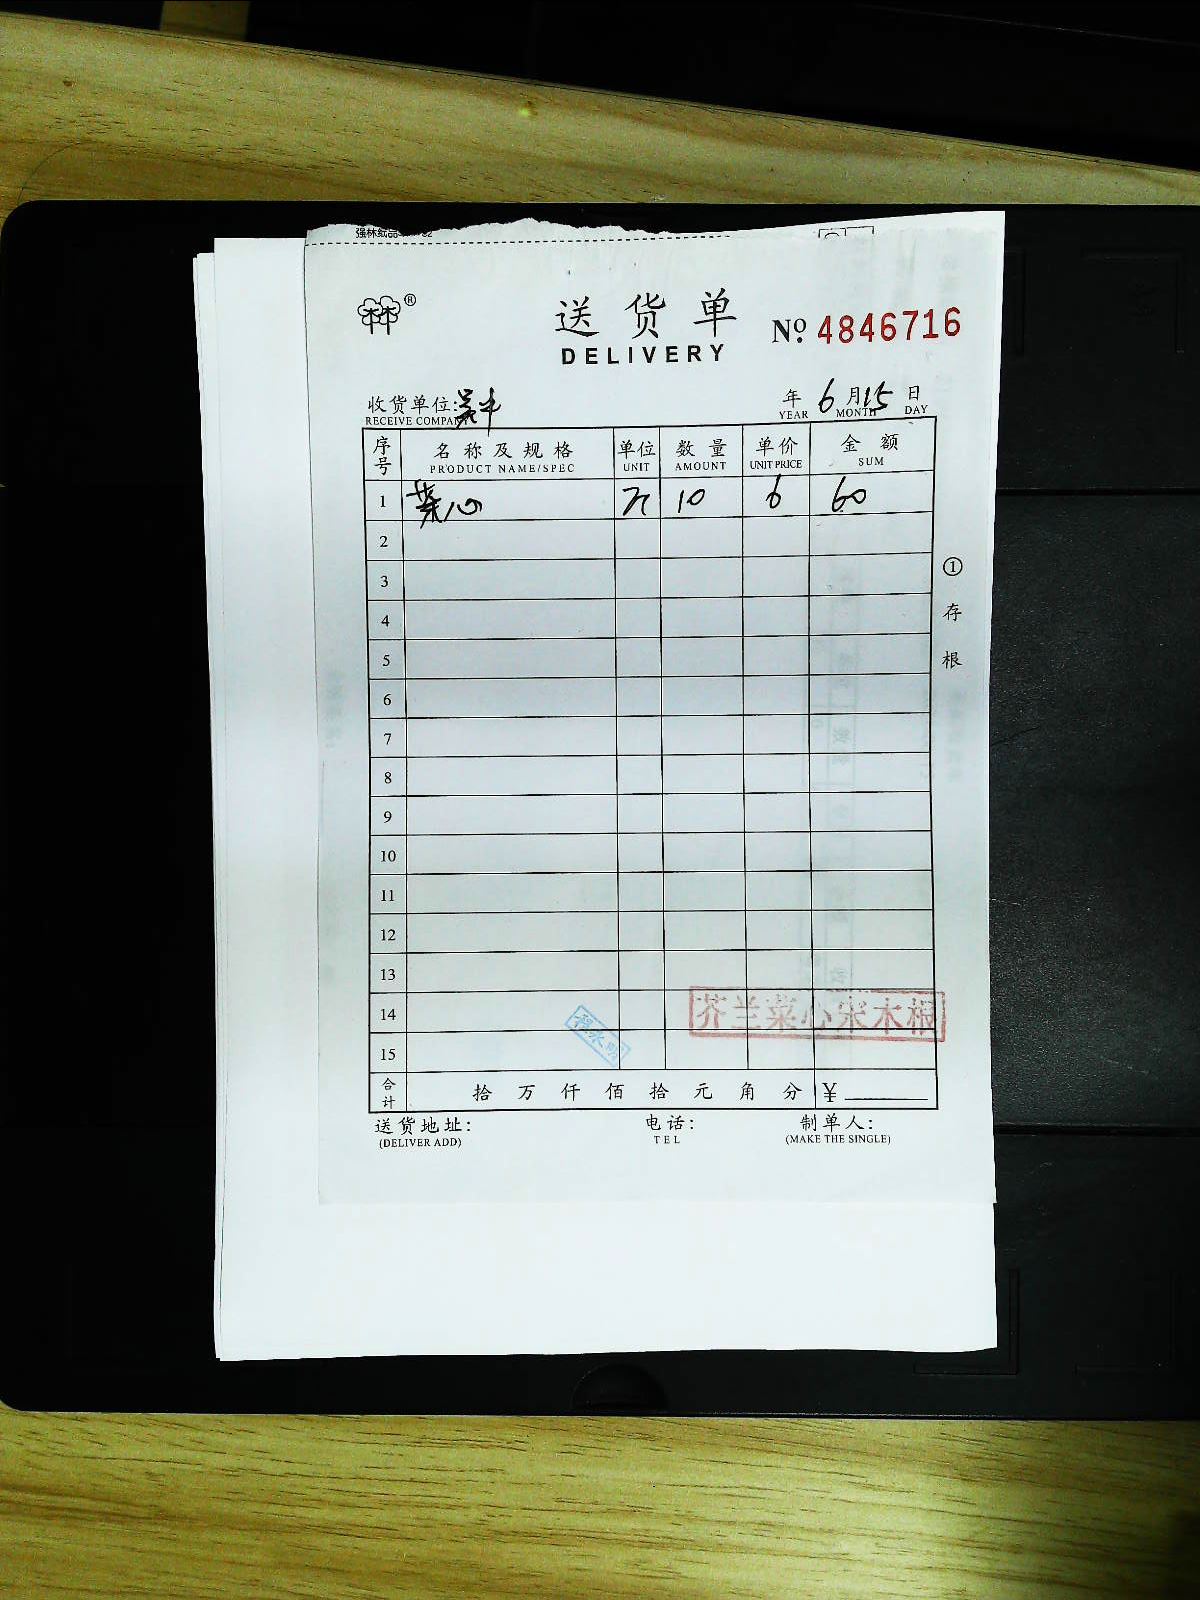 强林纸品
®
送货单
DELIVERY
№ 4846716
收货单位:
RECEIVE COMPANY
年 6 月 15 日
YEAR MONTH DAY
序号 名称及规格 单位 数量 单价 金额
PRODUCT NAME/SPEC UNIT AMOUNT UNIT PRICE SUM
1 菜心 斤 10 6 60
2
3
4
5
6
7
8
9
10
11
12
13
14
15
芥兰菜心宋木根
合计 拾 万 仟 佰 拾 元 角 分 ¥
送货地址: 电话: 制单人:
(DELIVER ADD) TEL (MAKE THE SINGLE)
① 存根